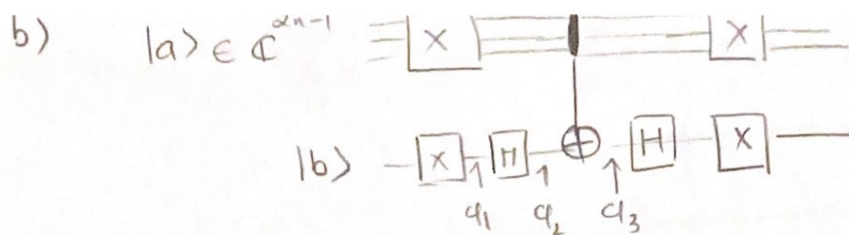 b) |a⟩ ∈ ℂ^{2n-1} X X
|b⟩ X H H X
q₁ q₂ q₃